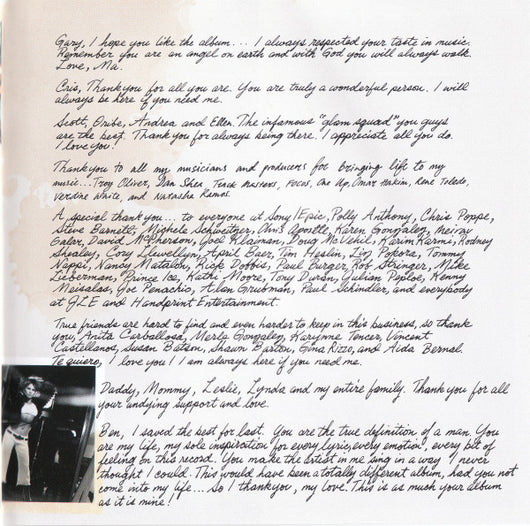 Gary, I hope you like the album... I always respected your taste in music.
Remember you are an angel on earth and with God you will always walk.
Love, Ma.
Cris, Thank you for all you are. You are truly a wonderful person. I will
always be here if you need me.
Scott, Oribe, Andrea and Ellen. The infamous "glam squad" you guys
are the best. Thank you for always being there. I appreciate all you do.
I love you!
Thank you to all my musicians and producers for bringing life to my
music... Troy Oliver, Dan Shea, Track Masters, Focus, One Up, Omar Hakim, Rene Toledo,
Verdine White, and Natasha Ramos.
A special thank you... to everyone at Sony/Epic, Polly Anthony, Chris Poppe,
Steve Barnett, Michele Schweitzer, Chris Apostle, Karen Gonzalez, Meiray
Gator, David McPherson, Joel Klaiman, Doug McVehil, Karim Karmi, Rodney
Shealey, Cory Llewellyn, April Baer, Tim Heslin, Lin Pokora, Tommy
Nappi, Nancy Matalon, Rick Dobbis, Paul Burger, Rob Stringer, Mike
Lieberman, Prince Ice, Kathi Moore, Tony Duron, Julian Peploe, Kenny
Meiselas, Joe Penachio, Allen Grubman, Paul Schindler, and everybody
at GLE and Handprint Entertainment.
True friends are hard to find and even harder to keep in this business, so thank
you, Anita Carballosa, Merly Gonzalez, Karynne Tencer, Vincent
Castellanos, Susan Batson, Shawn Barton, Gina Rizzo, and Aida Bernal.
Te quiero, I love you! I am always here if you need me.
Daddy, Mommy, Leslie, Lynda and my entire family. Thank you for all
your undying support and love.
Ben, I saved the best for last. You are the true definition of a man. You
are my life, my sole inspiration for every lyric, every emotion, every bit of
feeling on this record. You make the artist in me sing in a way I never
thought I could. This would have been a totally different album, had you not
come into my life... so I thank you, my love. This is as much your album
as it is mine!